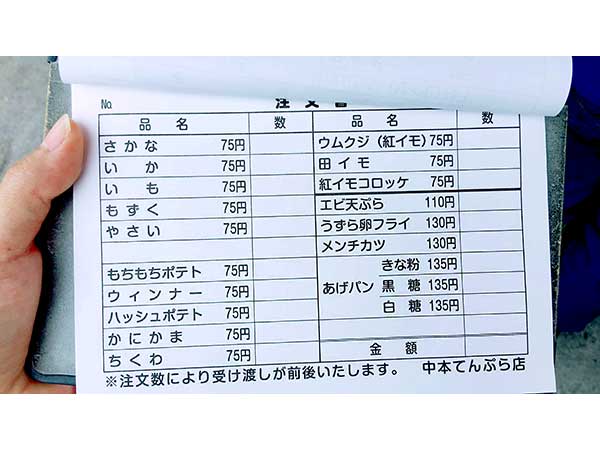 №
注文書
品名 数 品名 数
さかな 75円
いか 75円
いも 75円
もずく 75円
やさい 75円
もちもちポテト 75円
ウィンナー 75円
ハッシュポテト 75円
かにかま 75円
ちくわ 75円
ウムクジ(紅イモ) 75円
田イモ 75円
紅イモコロッケ 75円
エビ天ぷら 110円
うずら卵フライ 130円
メンチカツ 130円
あげパン
きな粉 135円
黒糖 135円
白糖 135円
金額
※注文数により受け渡しが前後いたします。 中本てんぷら店